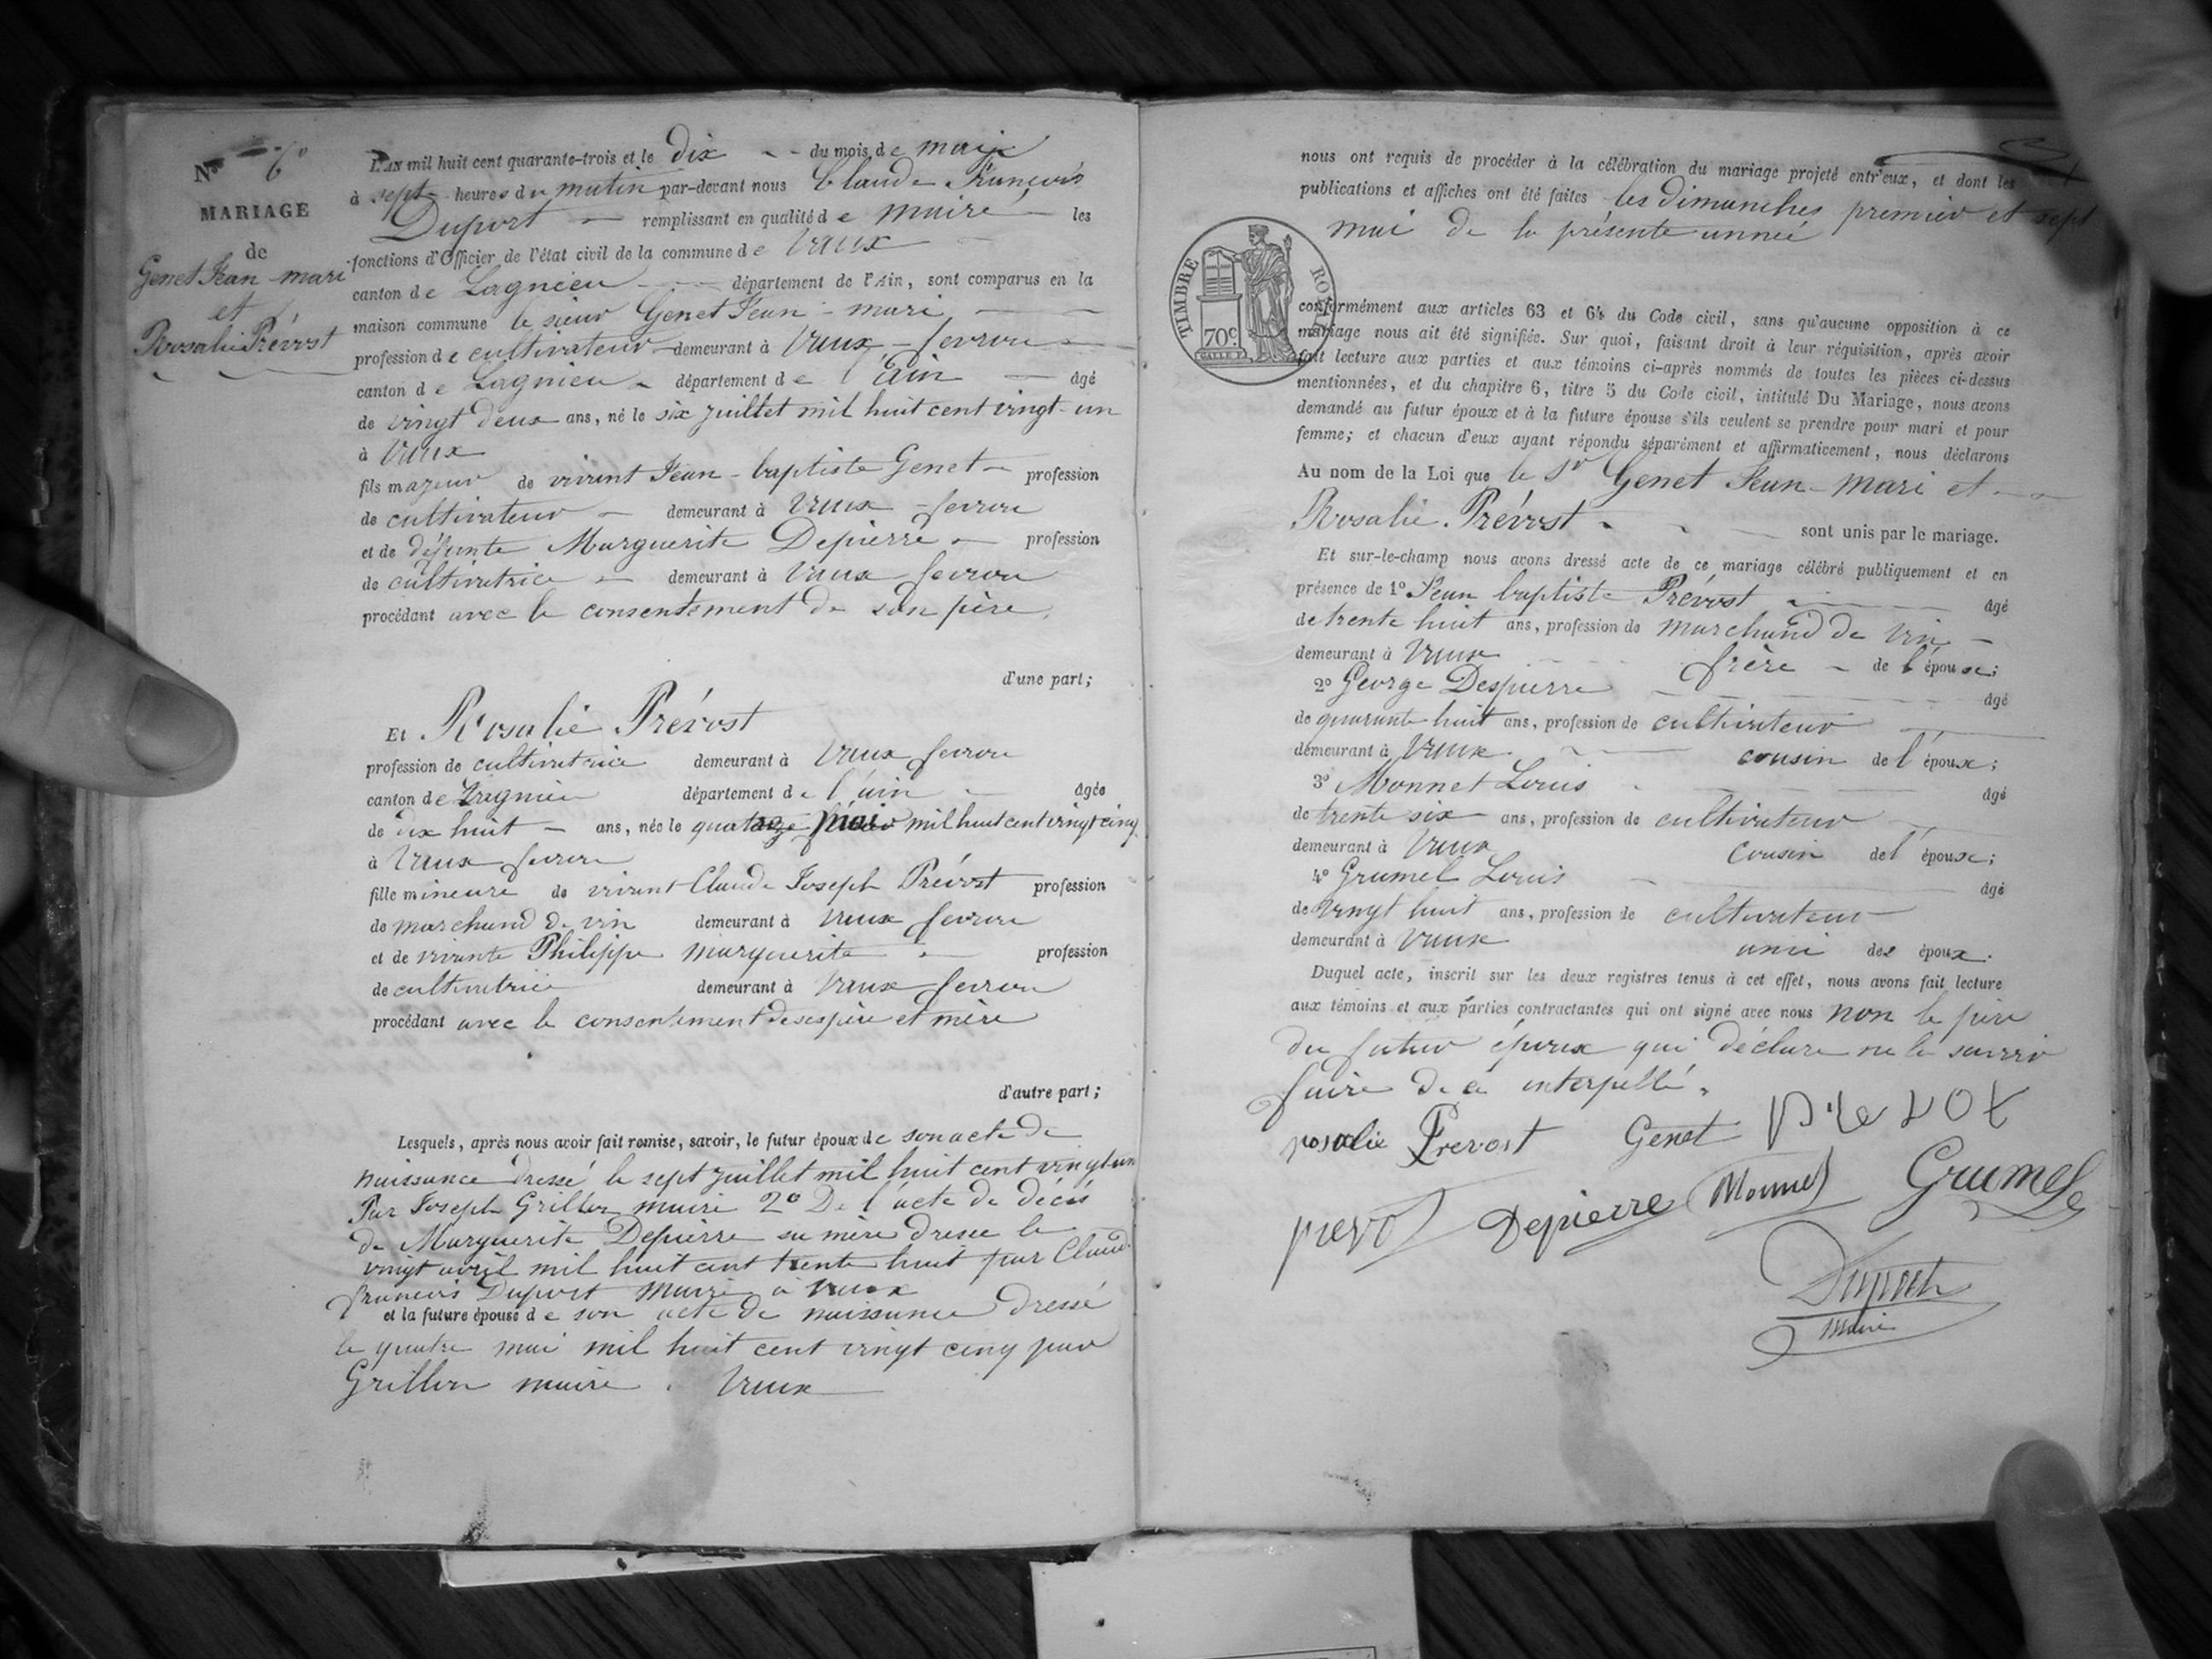 No 6
MARIAGE
de
Genet Jean mari
et
Rosalie Prévost
L'AN mil huit cent quarante-trois et le dix du mois de mai
à sept heures du matin par-devant nous Claude François
Duport remplissant en qualité de maire les
fonctions d'Officier de l'état civil de la commune de Vaux
canton de Lagnieu département de l'Ain, sont comparus en la
maison commune le sieur Genet Jean-mari
profession de cultivateur demeurant à Vaux-fevrou
canton de Lagnieu département de l'ain âgé
de vingt deux ans, né le six juillet mil huit cent vingt-un
à Vaux
fils majeur de vivant Jean-baptiste Genet profession
de cultivateur demeurant à Vaux-fevrou
et de défunte Marguerite Depierre profession
de cultivatrice demeurant à Vaux fevrou
procédant avec le consentement de son père
d'une part;
Et Rosalie Prévost
profession de cultivatrice demeurant à Vaux fevrou
canton de Lagnieu département de l'ain âgée
de dix huit ans, née le mai mil huit cent vingt cinq
à Vaux fevrou
fille mineure de vivant Claude Joseph Prévost profession
de marchand de vin demeurant à Vaux fevrou
et de vivante Philippe marguerite profession
de cultivatrice demeurant à Vaux fevrou
procédant avec le consentement de ses père et mère
d'autre part;
Lesquels, après nous avoir fait remise, savoir, le futur époux de son acte de
naissance dressé le sept juillet mil huit cent vingt-un
Par Joseph Grillon maire 2º De l'acte de décès
de Marguerite Depierre sa mère dressé le
vingt avril mil huit cent trente huit par Claude
françois Duport Maire à Vaux
et la future épouse de son acte de naissance dressé
le quatre mai mil huit cent vingt cinq par
Grillon maire Vaux
nous ont requis de procéder à la célébration du mariage projeté entr'eux, et dont les
publications et affiches ont été faites les dimanches premier et sept
mai de la présente année
TIMBRE ROYAL
70c.
conformément aux articles 63 et 64 du Code civil, sans qu'aucune opposition à ce
mariage nous ait été signifiée. Sur quoi, faisant droit à leur réquisition, après avoir
fait lecture aux parties et aux témoins ci-après nommés de toutes les pièces ci-dessus
mentionnées, et du chapitre 6, titre 5 du Code civil, intitulé Du Mariage, nous avons
demandé au futur époux et à la future épouse s'ils veulent se prendre pour mari et pour
femme; et chacun d'eux ayant répondu séparément et affirmativement, nous déclarons
Au nom de la Loi que le Sr Genet Jean-mari et
Rosalie Prévost sont unis par le mariage.
Et sur-le-champ nous avons dressé acte de ce mariage célébré publiquement et en
présence de 1º Jean baptiste Prévost âgé
de trente huit ans, profession de marchand de vin
demeurant à Vaux frère de l'épouse;
2º George Despierre âgé
de quarante huit ans, profession de cultivateur
demeurant à Vaux cousin de l'époux;
3º Monnet Louis âgé
de trente six ans, profession de cultivateur
demeurant à Vaux cousin de l'épouse;
4º Grumel Louis âgé
de vingt huit ans, profession de cultivateur
demeurant à Vaux ami des époux.
Duquel acte, inscrit sur les deux registres tenus à cet effet, nous avons fait lecture
aux témoins et aux parties contractantes qui ont signé avec nous non le père
du futur époux qui déclare ne le savoir
faire de ce interpellé.
rosalie Prevost Genet prevot
prevot Depierre Monnet Grumel
Duport
Maire